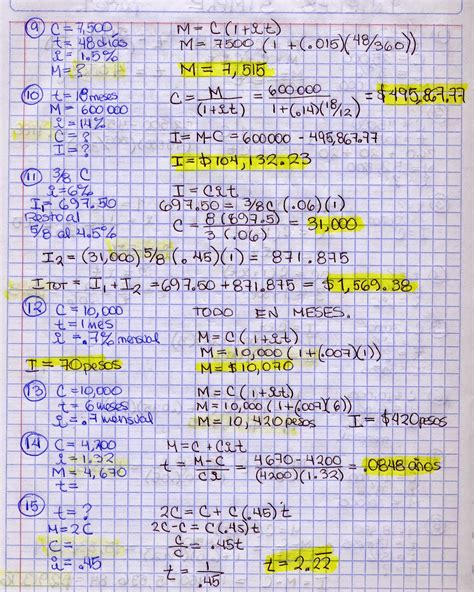 9 C=7,500 M=C(1+it)
t=48 días M=7500(1+(.015)(48/360))
i=1.5%
M=? M=7,515
10 t=18 meses C=M/(1+it)=600000/1+(.14)(18/12)=$495,867.77
M=600000
i=14%
C=? I=M-C=600000-495,867.77
I=? I=$104,132.23
11 3/8 C
i=6% I=Cit
I₁=697.50 697.50=3/8C(.06)(1)
Resto al C=8(697.5)/3(.06)=31,000
5/8 al 4.5%
I₂=(31,000)5/8(.45)(1)=871.875
ITOT=I₁+I₂=697.50+871.875=$1,569.38
12 C=10,000 TODO EN MESES.
t=1 mes
i=.7% mensual M=C(1+it)
M=10,000(1+(.007)(1))
I=70 pesos M=$10,070
13 C=10,000 M=C(1+it)
t=6 meses M=10,000(1+(.007)(6))
i=.7 mensual M=10,420 pesos I=$420 pesos
14 C=4,200 M=C+Cit
i=1.32 t=M-C/Ci=4670-4200/(4200)(1.32)=.0848 años
M=4,670
t=
15 t=? 2C=C+C(.45)t
M=2C 2C-C=C(.45)t
C= C/C=.45t
i=.45 t=1/.45 t=2.22